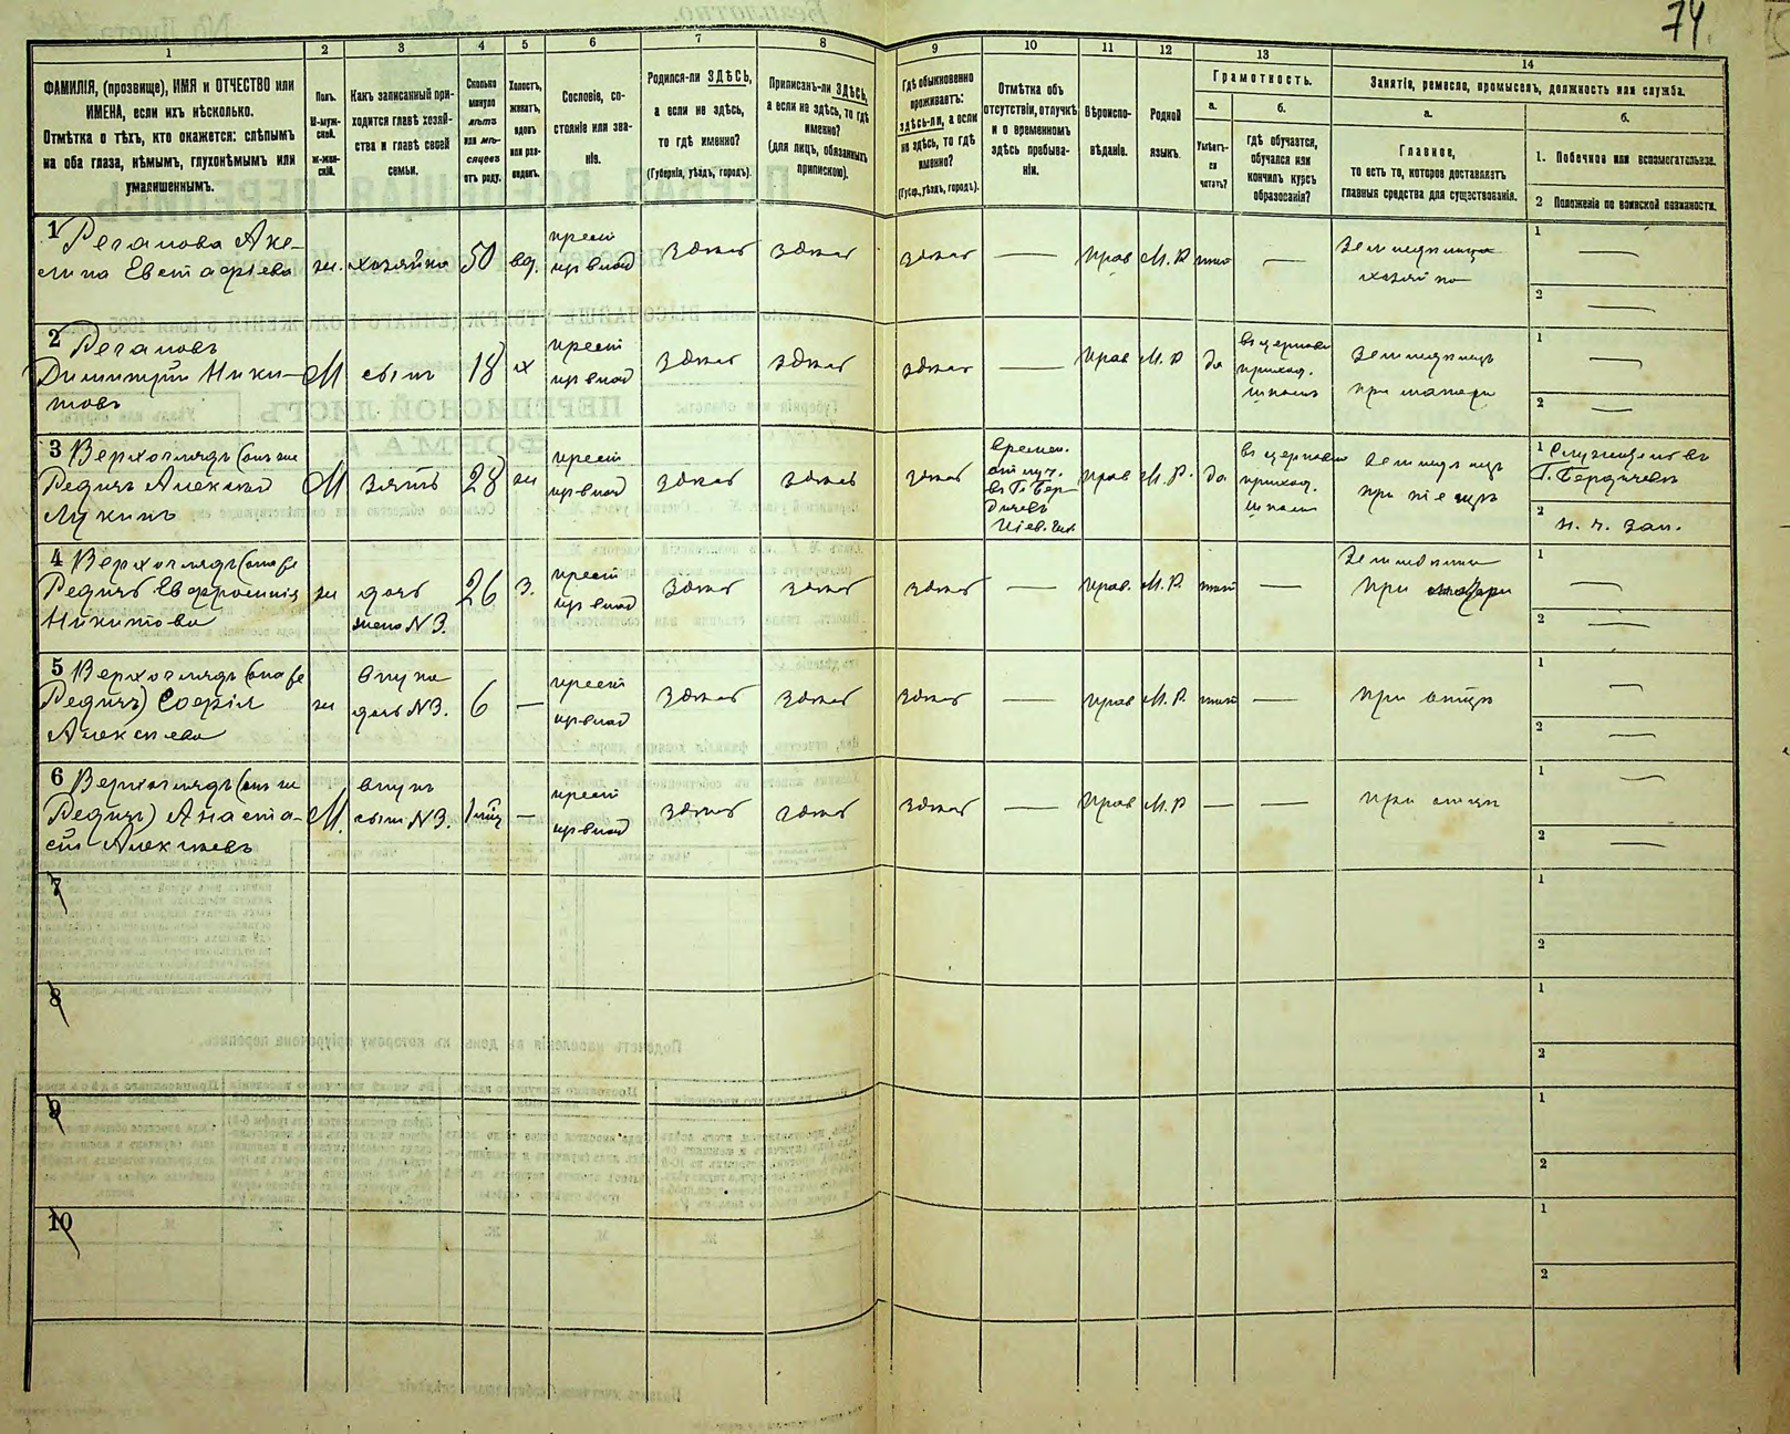 74.
1
2
3
4
5
6
7
8
9
10
11
12
13
14
ФАМИЛІЯ, (прозвище), ИМЯ и ОТЧЕСТВО или
ИМЕНА, если ихъ нѣсколько.
Отмѣтка о тѣхъ, кто окажется: слѣпымъ
на оба глаза, нѣмымъ, глухонѣмымъ или
умалишеннымъ.
Полъ.
М-муж-
ской.
Ж-жен-
скій.
Какъ записанный при-
ходится главѣ хозяй-
ства и главѣ своей
семьи.
Сколько
минуло
лѣтъ
или мѣ-
сяцевъ
отъ роду.
Холостъ,
женатъ,
вдовъ
или раз-
веденъ.
Сословіе, со-
стояніе или зва-
ніе.
Родился-ли ЗДѢСЬ,
а если не здѣсь,
то гдѣ именно?
(Губернія, уѣздъ, городъ).
Приписанъ-ли ЗДѢСЬ,
а если не здѣсь, то гдѣ
именно?
(для лицъ, обязанныхъ
припискою).
Гдѣ обыкновенно
проживаетъ:
здѣсь-ли, а если
не здѣсь, то гдѣ
именно?
(Губер., уѣздъ, городъ).
Отмѣтка объ
отсутствіи, отлучкѣ
и о временномъ
здѣсь пребыва-
ніи.
Вѣроиспо-
вѣданіе.
Родной
языкъ.
Грамотность.
а.
Умѣетъ-
ли
читать?
б.
гдѣ обучается,
обучался или
кончилъ курсъ
образованія?
Занятіе, ремесло, промыселъ, должность или служба.
а.
Главное,
то есть то, которое доставляетъ
главныя средства для существованія.
б.
1. Побочное или вспомогательное.
2 Положеніе по воинской повинности.
1
Евстафіева
ж.
хозяйка
50
вд.
крест
здѣсь
здѣсь
здѣсь
—
прав
М.Р
—
хозяйка
1 —
2 —
2
Димитрій Ники-
товъ
М
сынъ
18
х
крест
здѣсь
здѣсь
здѣсь
—
прав
М.Р
да
въ церковно
приход.
школѣ
при матери
1 —
2 —
3 Верхоглядъ (онъ же
Редичъ Алексѣй
Лукинъ
М
зять
28
ж
крест
здѣсь
здѣсь
здѣсь
времен.
отлуч.
въ Г. Бер-
дичевъ
Кіев. Губ.
прав
М.Р.
да
въ церковно
приход.
школѣ
1 Служащимъ въ
Г. Бердичевѣ
2
н. ч. зап.
4 Верхоглядъ (она же
Редичъ Евфросинія
Никитова
ж
дочь
жена N 3.
26
з.
крест
здѣсь
здѣсь
здѣсь
—
прав.
М.Р.
—
при матери
1 —
2 —
5 Верхоглядъ (она же
Редичъ) Софія
Алексѣева
ж
внучка
дочь N 3.
6
—
крест
здѣсь
здѣсь
здѣсь
—
прав
М.Р.
—
при отцѣ
1 —
2 —
6 Верхоглядъ (онъ же
Редичъ) Анаста-
сій Алексѣевъ
М.
внукъ
сынъ N 3.
—
крест
здѣсь
здѣсь
здѣсь
—
прав
М.Р
—
—
при отцѣ
1 —
2 —
7
1
2
8
1
2
9
1
2
10
1
2